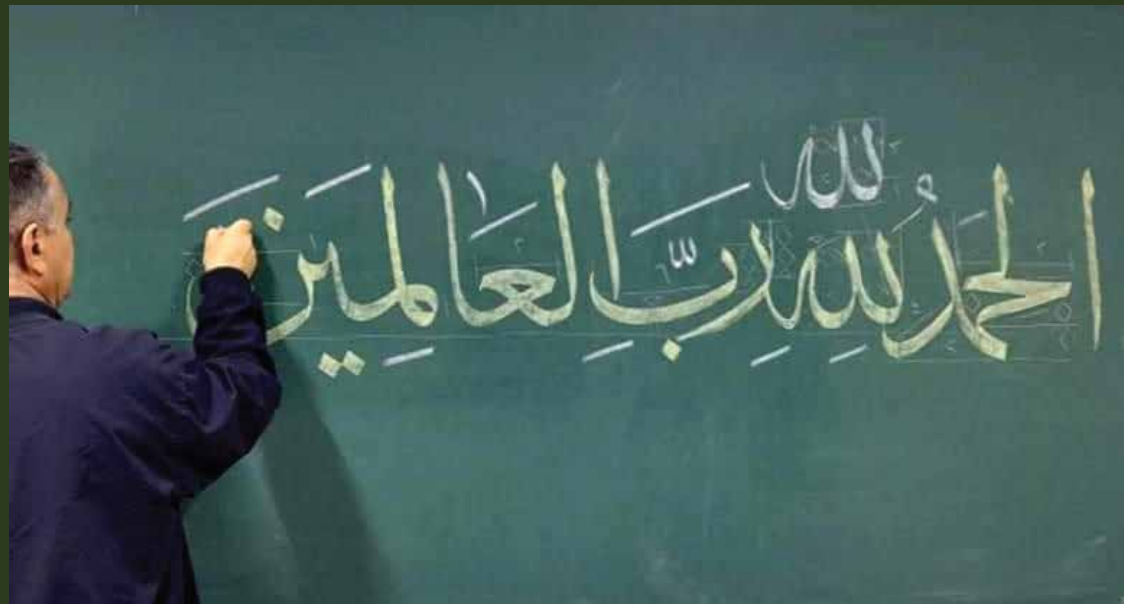 لله
الحمدُ لِلهِ رَبِّ العَالَمِينَ